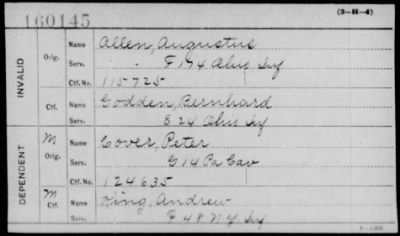 160145 (3-H-4)
INVALID
Orig. Name Allen, Augustus
Serv. F 174 Ohio Inf
Ctf. No. 115725
Ctf. Name Godden, Bernhard
Serv. B 24 Ohio Inf
DEPENDENT
M Orig. Name Cover, Peter
Serv. G 14 Pa Cav
Ctf. No. 124635
M Ctf. Name King, Andrew
Serv. F 48 N.Y. Inf